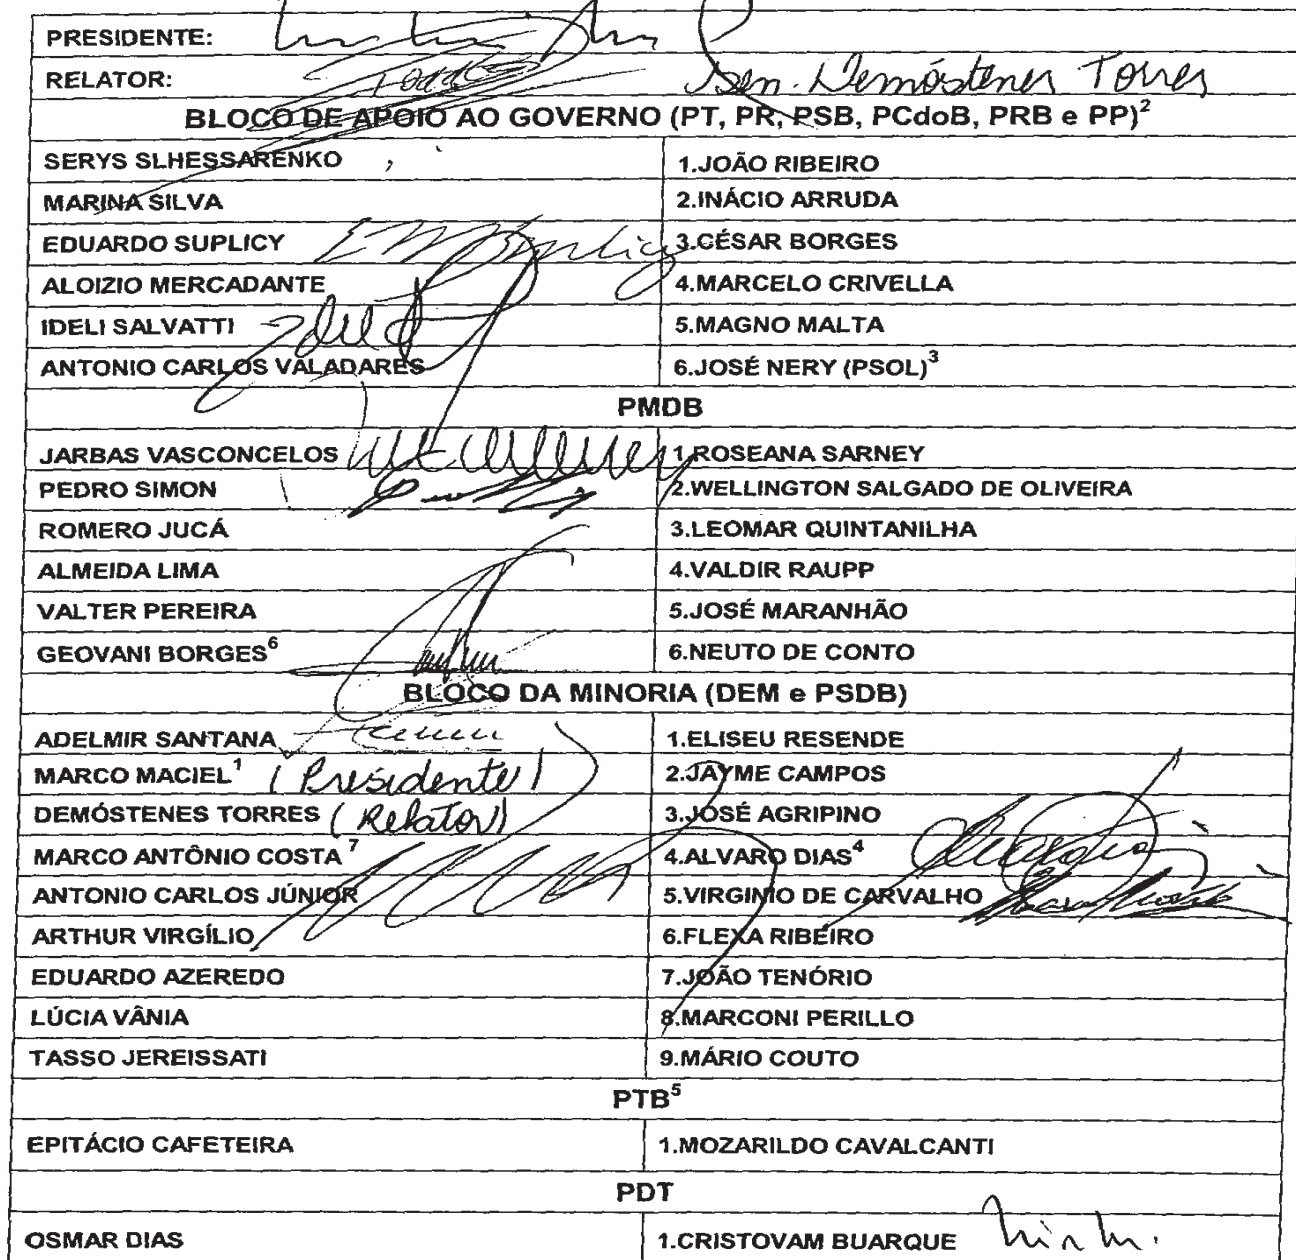 PRESIDENTE:
RELATOR: Sen. Demóstenes Torres
BLOCO DE APOIO AO GOVERNO (PT, PR, PSB, PCdoB, PRB e PP)²
SERYS SLHESSARENKO 1.JOÃO RIBEIRO
MARINA SILVA 2.INÁCIO ARRUDA
EDUARDO SUPLICY 3.CÉSAR BORGES
ALOIZIO MERCADANTE 4.MARCELO CRIVELLA
IDELI SALVATTI 5.MAGNO MALTA
ANTONIO CARLOS VALADARES 6.JOSÉ NERY (PSOL)³
PMDB
JARBAS VASCONCELOS 1.ROSEANA SARNEY
PEDRO SIMON 2.WELLINGTON SALGADO DE OLIVEIRA
ROMERO JUCÁ 3.LEOMAR QUINTANILHA
ALMEIDA LIMA 4.VALDIR RAUPP
VALTER PEREIRA 5.JOSÉ MARANHÃO
GEOVANI BORGES⁶ 6.NEUTO DE CONTO
BLOCO DA MINORIA (DEM e PSDB)
ADELMIR SANTANA 1.ELISEU RESENDE
MARCO MACIEL¹ (Presidente) 2.JAYME CAMPOS
DEMÓSTENES TORRES (Relator) 3.JOSÉ AGRIPINO
MARCO ANTÔNIO COSTA ⁷ 4.ALVARO DIAS⁴
ANTONIO CARLOS JÚNIOR 5.VIRGINIO DE CARVALHO
ARTHUR VIRGÍLIO 6.FLEXA RIBEIRO
EDUARDO AZEREDO 7.JOÃO TENÓRIO
LÚCIA VÂNIA 8.MARCONI PERILLO
TASSO JEREISSATI 9.MÁRIO COUTO
PTB⁵
EPITÁCIO CAFETEIRA 1.MOZARILDO CAVALCANTI
PDT
OSMAR DIAS 1.CRISTOVAM BUARQUE